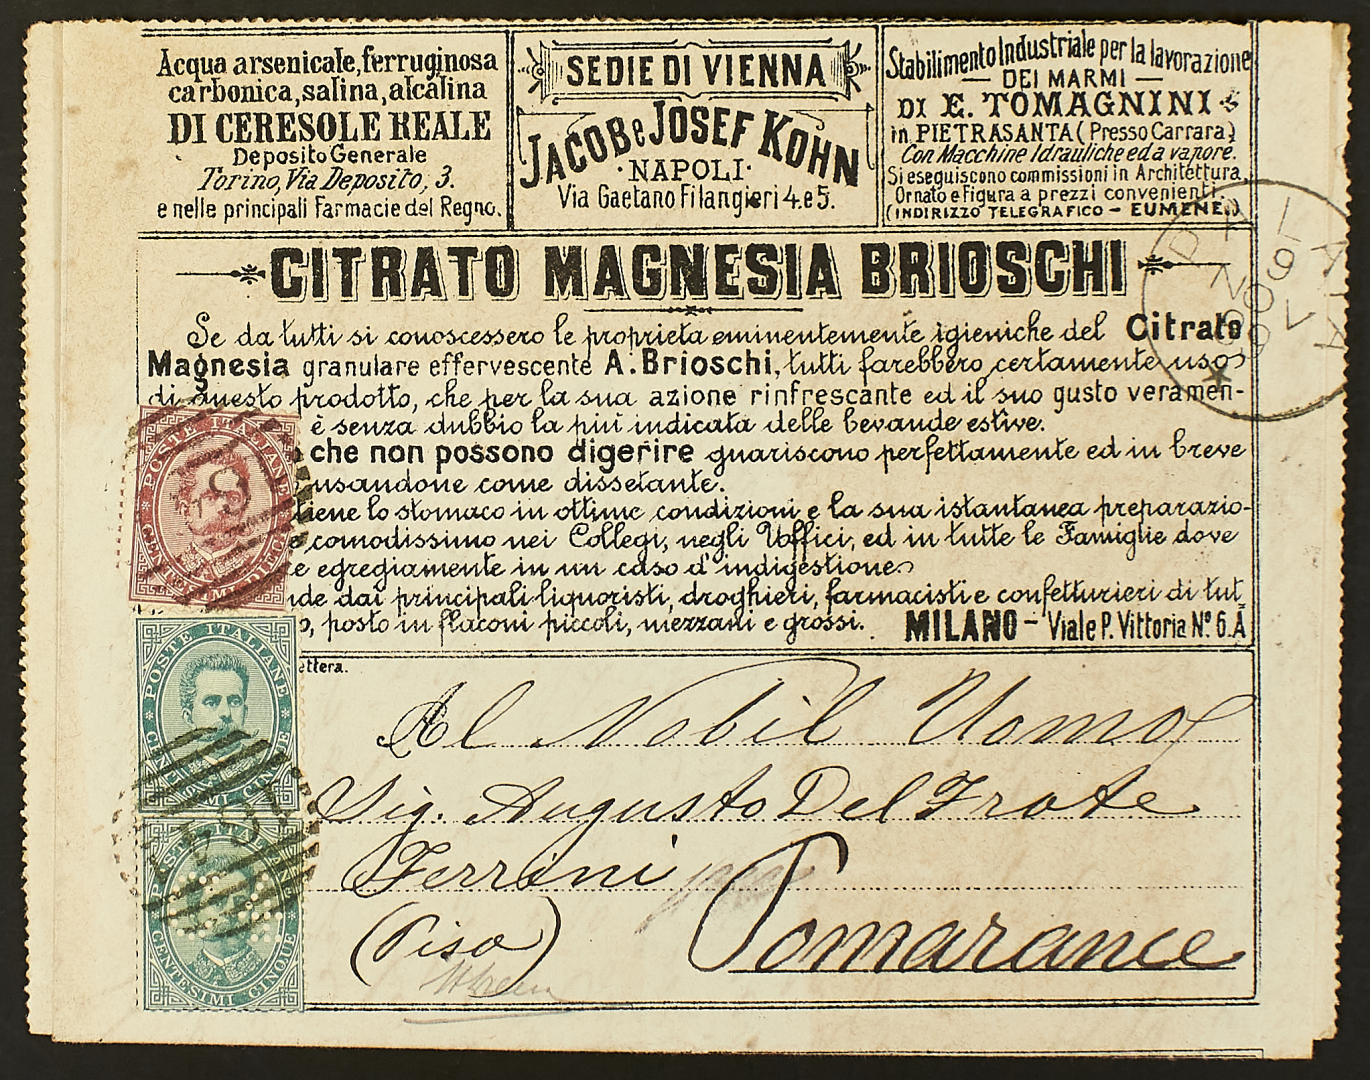 Acqua arsenicale, ferruginosa
carbonica, salina, alcalina
DI CERESOLE REALE
Deposito Generale
Torino, Via Deposito, 3.
e nelle principali Farmacie del Regno.
SEDIE DI VIENNA
JACOB e JOSEF KOHN
·NAPOLI·
Via Gaetano Filangieri 4.e 5.
Stabilimento Industriale per la lavorazione
— DEI MARMI —
DI E. TOMAGNINI
in PIETRASANTA (Presso Carrara)
Con Macchine Idrauliche ed a vapore.
Si eseguiscono commissioni in Architettura
Ornato e Figura a prezzi convenienti
(INDIRIZZO TELEGRAFICO - EUMENE.)
CITRATO MAGNESIA BRIOSCHI
Se da tutti si conoscessero le proprietà eminentemente igieniche del Citrato
Magnesia granulare effervescente A. Brioschi, tutti farebbero certamente uso
di questo prodotto, che per la sua azione rinfrescante ed il suo gusto veramen-
è senza dubbio la più indicata delle bevande estive.
che non possono digerire guariscono perfettamente ed in breve
usandone come dissetante.
tiene lo stomaco in ottime condizioni e la sua istantanea preparazio-
comodissimo nei Collegi, negli Uffici, ed in tutte le Famiglie dove
e egregiamente in un caso d'indigestione
nde dai principali liquoristi, droghieri, farmacisti e confetturieri di tut
o, posto in flaconi piccoli, mezzani e grossi. MILANO - Viale P. Vittoria Nº 6. A
ettera.
Al Nobil Uomo
Sig. Augusto Del Frate
Ferrini
Pomarance
(Pisa)
POSTE ITALIANE
POSTE ITALIANE
CENTESIMI CINQUE
POSTE ITALIANE
CENTESIMI CINQUE